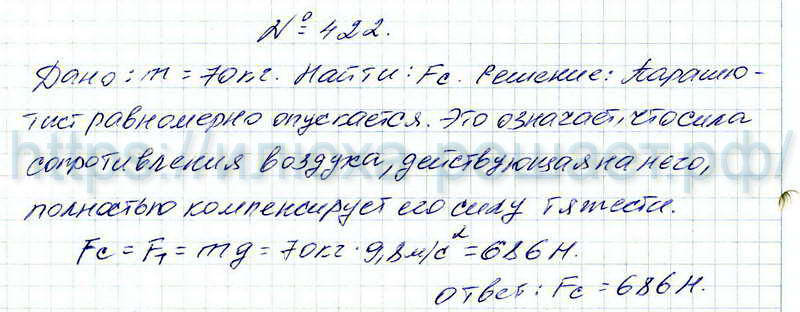 № 422.
Дано: m = 70кг. Найти: Fc. Решение: Парашю-
тист равномерно опускается. Это означает, что сила
сопротивления воздуха, действующая на него,
https://илюха-решает.рф/
полностью компенсирует его силу тяжести.
Fc = F₁ = mg = 70кг · 9,8м/с² = 686Н.
Ответ: Fc = 686Н.